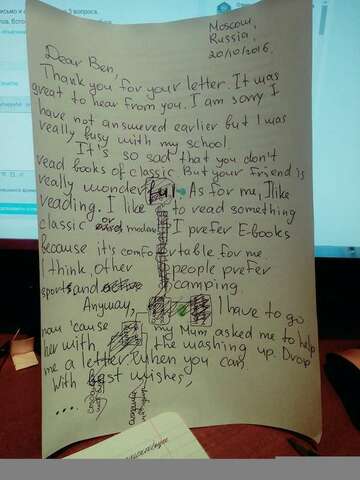 Moscow,
Russia,
20/10/2016.
Dear Ben,
Thank you for your letter. It was
great to hear from you. I am sorry I
have not answered earlier but I was
really busy with my school
It's so sad that you don't
read books of classic. But your friend is
really wonderful. As for me, I like
reading. I like to read something
classic or modern I prefer E-books
because it's comfortable for me.
I think, other people prefer
sports and camping.
Anyway, I have to go
now 'cause my Mum asked me to help
her with the washing up. Drop
me a letter when you can.
With best wishes,
....